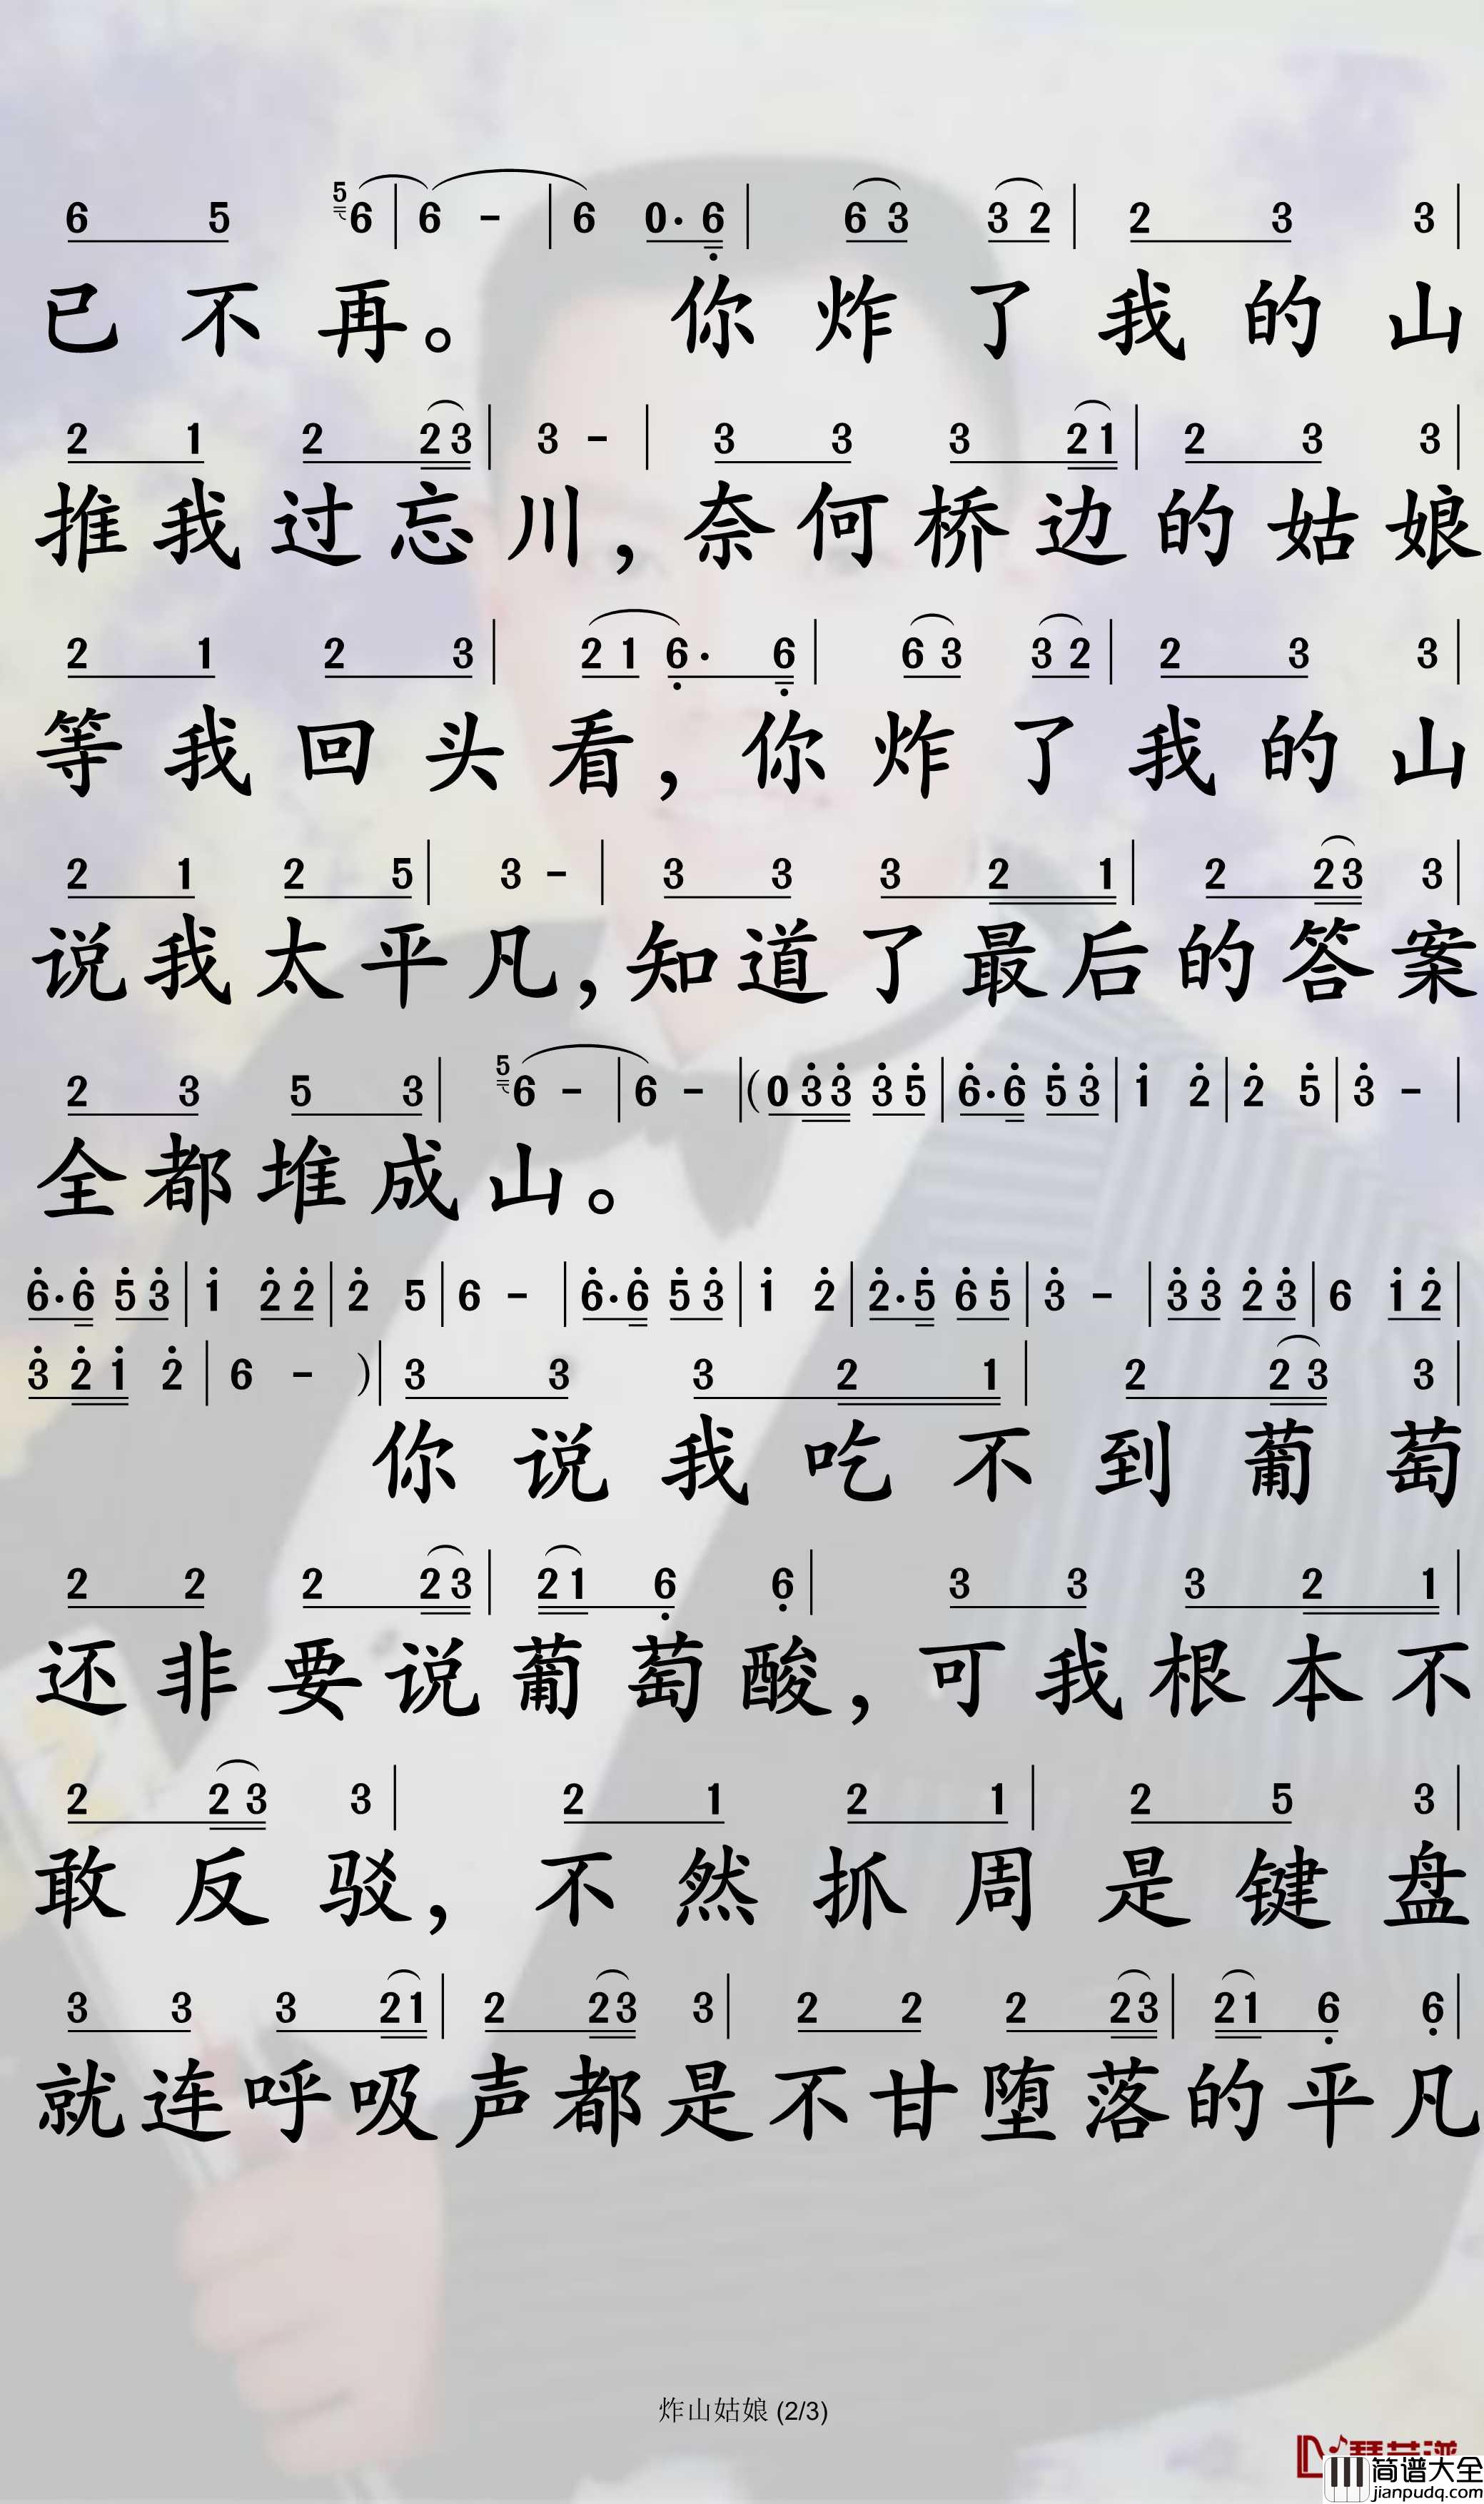 6 5 5 6 | 6 - | 6 0· 6 | 6 3 3 2 | 2 3 3 |
已不再。 你炸了我的山
2 1 2 2 3 | 3 - | 3 3 3 2 1 | 2 3 3 |
推我过忘川，奈何桥边的姑娘
2 1 2 3 | 2 1 6· 6 | 6 3 3 2 | 2 3 3 |
等我回头看，你炸了我的山
2 1 2 5 | 3 - | 3 3 3 2 1 | 2 2 3 3 |
说我太平凡，知道了最后的答案
2 3 5 3 | 5 6 - | 6 - | (0 3 3 3 5 | 6· 6 5 3 | 1 2 | 2 5 | 3 - |
全都堆成山。
6· 6 5 3 | 1 2 2 | 2 5 | 6 - | 6· 6 5 3 | 1 2 | 2· 5 6 5 | 3 - | 3 3 2 3 | 6 1 2 |
3 2 1 2 | 6 - ) | 3 3 3 2 1 | 2 2 3 3 |
你说我吃不到葡萄
2 2 2 2 3 | 2 1 6 6 | 3 3 3 2 1 |
还非要说葡萄酸，可我根本不
2 2 3 3 | 2 1 2 1 | 2 5 3 |
敢反驳，不然抓周是键盘
3 3 3 2 1 | 2 2 3 3 | 2 2 2 2 3 | 2 1 6 6 |
就连呼吸声都是不甘堕落的平凡
炸山姑娘 (2/3)
简谱大全
jianpudq.com